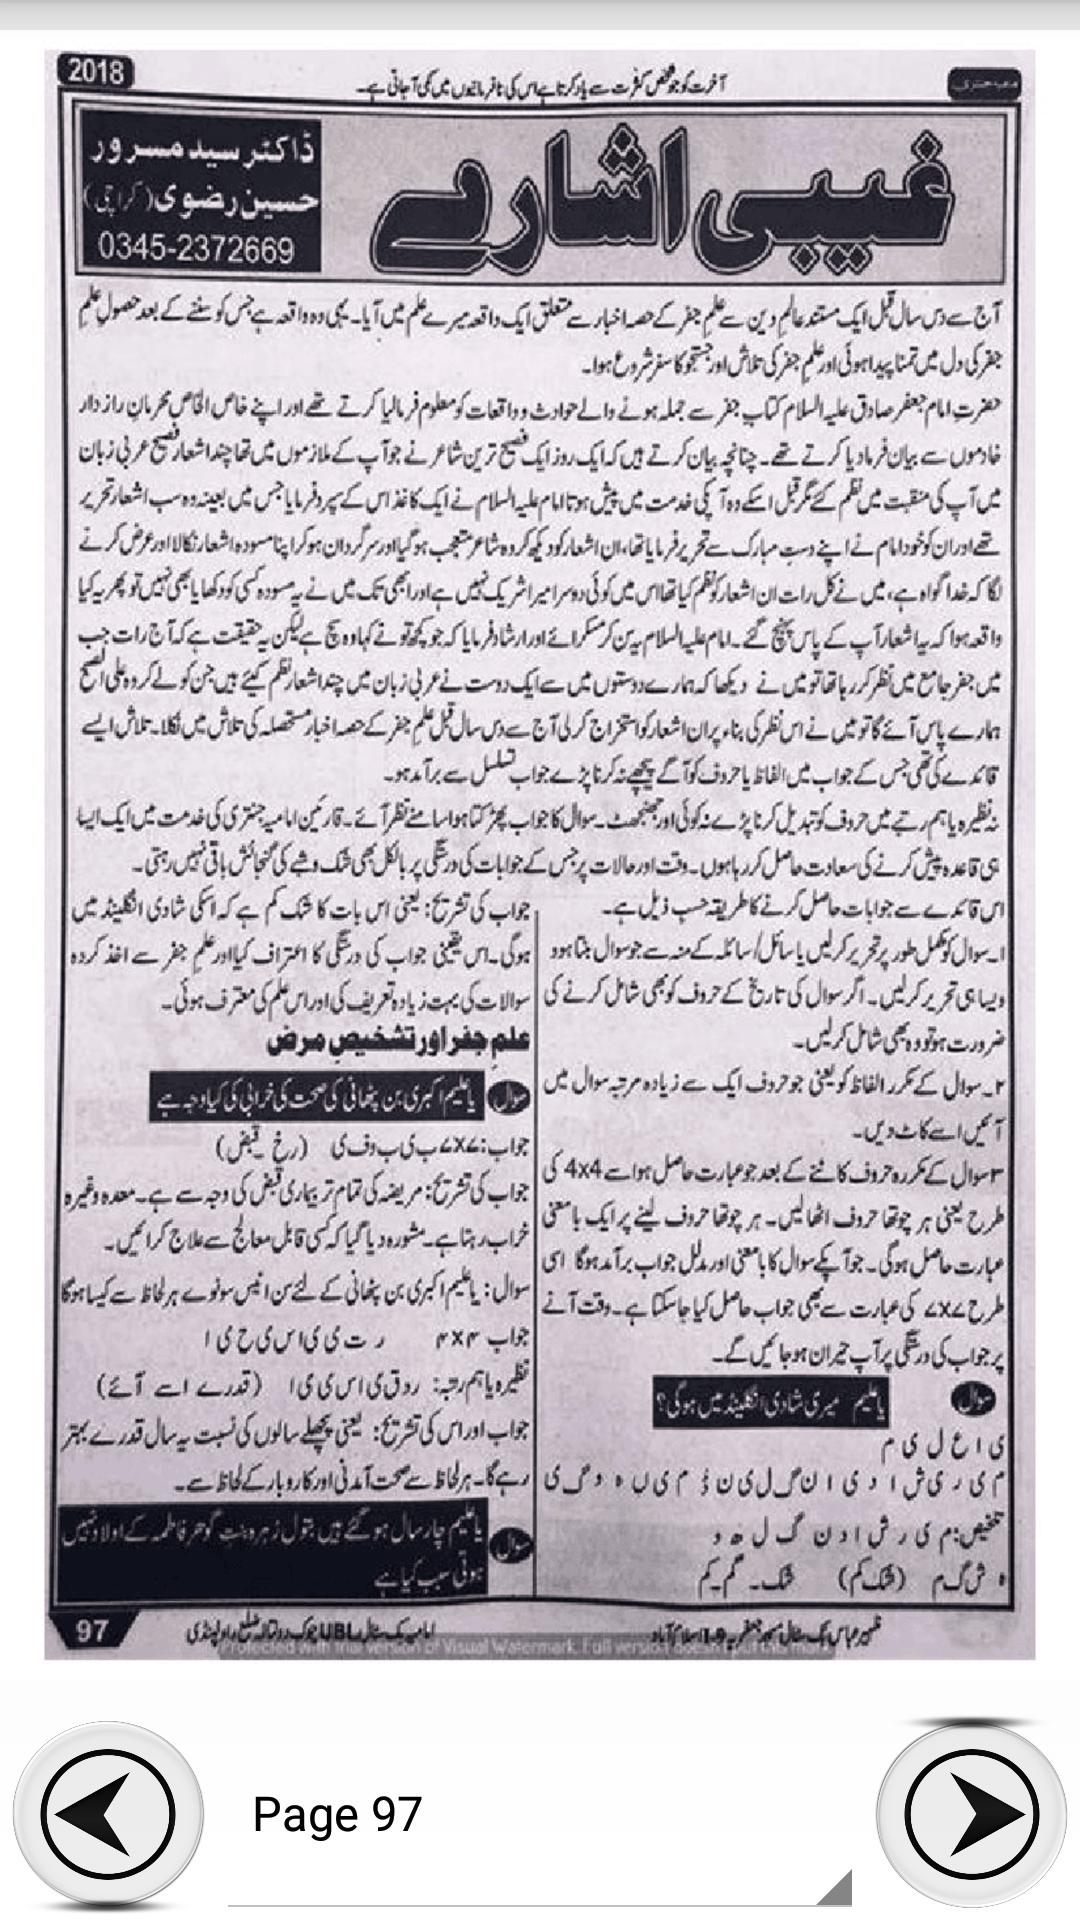 2018
آخرت کو جو شخص کثرت سے یاد کرتا ہے اس کی نافرمانیوں میں کمی آ جاتی ہے۔
غیبی اشارے
ڈاکٹر سید مسرور
حسین رضوی (کراچی)
0345-2372669
آج سے دس سال قبل ایک مستند عالم دین سے علم جفر کے حصہ اخبار سے متعلق ایک واقعہ میرے علم میں آیا۔ یہی وہ واقعہ ہے جس کو سننے کے بعد حصول علم
جفر کی دل میں تمنا پیدا ہوئی اور علم جفر کی تلاش اور جستجو کا سفر شروع ہوا۔
حضرت امام جعفر صادق علیہ السلام کتاب جفر سے جملہ ہونے والے حوادث و واقعات کو معلوم فرمالیا کرتے تھے اور اپنے خاص الخاص محرمان راز دار
خادموں سے بیان فرما دیا کرتے تھے۔ چنانچہ بیان کرتے ہیں کہ ایک روز ایک فصیح ترین شاعر نے جو آپ کے ملازموں میں تھا چند اشعار فصیح عربی زبان
میں آپ کی منقبت میں نظم کئے مگر قبل اسکے وہ آپکی خدمت میں پیش ہوتا امام علیہ السلام نے ایک کاغذ اس کے سپرد فرمایا جس میں بعینہ وہ سب اشعار تحریر
تھے اور ان کو خود امام نے اپنے دست مبارک سے تحریر فرمایا تھا، ان اشعار کو دیکھ کر وہ شاعر متعجب ہو گیا اور سرگردان ہو کر اپنا مسودہ اشعار نکالا اور عرض کرنے
لگا کہ خدا گواہ ہے، میں نے کل رات ان اشعار کو نظم کیا تھا اس میں کوئی دوسرا میرا شریک نہیں ہے اور ابھی تک میں نے یہ مسودہ کسی کو دکھایا بھی نہیں تو پھر یہ کیا
واقعہ ہوا کہ یہ اشعار آپ کے پاس پہنچ گئے۔ امام علیہ السلام یہ سن کر مسکرائے اور ارشاد فرمایا کہ جو کچھ تو نے کہا وہ سچ ہے لیکن یہ حقیقت ہے کہ آج رات جب
میں جفر جامع میں نظر کر رہا تھا تو میں نے دیکھا کہ ہمارے دوستوں میں سے ایک دوست نے عربی زبان میں چند اشعار نظم کیئے ہیں جن کو لے کر وہ علی الصبح
ہمارے پاس آئے گا تو میں نے اس نظر کی بناء پر ان اشعار کو استخراج کر لی آج سے دس سال قبل علم جفر کے حصہ اخبار مستحصلہ کی تلاش میں نکلا۔ تلاش ایسے
قائدے کی تھی جس کے جواب میں الفاظ یا حروف کو آگے پیچھے نہ کرنا پڑے جواب تسلسل سے برآمد ہو۔
نہ نظیرہ یا ہم رتبے میں حروف کو تبدیل کرنا پڑے نہ کوئی اور جھنجھٹ۔ سوال کا جواب پھڑکتا ہوا سامنے نظر آئے۔ قارئین امامیہ جنتری کی خدمت میں ایک ایسا
ہی قاعدہ پیش کرنے کی سعادت حاصل کر رہا ہوں۔ وقت اور حالات پر جس کے جوابات کی درستگی پر بالکل بھی شک وشبے کی گنجائش باقی نہیں رہتی۔
اس قائدے سے جوابات حاصل کرنے کا طریقہ حسب ذیل ہے۔
۱۔ سوال کو مکمل طور پر تحریر کر لیں یا سائل/سائلہ کے منہ سے جو سوال بنتا ہو وہ
ویسا ہی تحریر کر لیں۔ اگر سوال کی تاریخ کے حروف کو بھی شامل کرنے کی
ضرورت ہو تو وہ بھی شامل کر لیں۔
۲۔ سوال کے مکرر الفاظ کو یعنی جو حروف ایک سے زیادہ مرتبہ سوال میں
آئیں اسے کاٹ دیں۔
۳ سوال کے مکررہ حروف کاٹنے کے بعد جو عبارت حاصل ہو اسے 4x4 کی
طرح یعنی ہر چوتھا حروف اٹھا لیں۔ ہر چوتھا حروف لینے پر ایک با معنی
عبارت حاصل ہوگی۔ جو آپکے سوال کا با معنی اور مدلل جواب برآمد ہوگا اسی
طرح ۷x۷ کی عبارت سے بھی جواب حاصل کیا جا سکتا ہے۔ وقت آنے
پر جواب کی درستگی پر آپ حیران ہو جائیں گے۔
سوال یا علیم میری شادی انگلینڈ میں ہوگی؟
ی ا ع ل ی م
م ی ر ی ش ا د ی ا ن گ ل ی ن ڈ م ی ں ہ و گ ی
تخلیص: م ی ر ش ا د ن گ ل ھ و
ہ ش گ م (شک کم) شک۔ گم۔ کم
جواب کی تشریح: یعنی اس بات کا شک کم ہے کہ اسکی شادی انگلینڈ میں
ہوگی۔ اس یقینی جواب کی درستگی کا اعتراف کیا اور علم جفر سے اخذ کردہ
سوالات کی بہت زیادہ تعریف کی اور اس علم کی معترف ہوئی۔
علم جفر اور تشخیص مرض
سوال یا علیم اکبری بن پٹھانی کی صحت کی خرابی کی کیا وجہ ہے
جواب: ۷x۷ ب ی ب و ف ی (رخ قبض)
جواب کی تشریح: مریضہ کی تمام تر بیماری قبض کی وجہ سے ہے۔ معدہ وغیرہ
خراب رہتا ہے۔ مشورہ دیا گیا کہ کسی قابل معالج سے علاج کرائیں۔
سوال: یا علیم اکبری بن پٹھانی کے لئے سن انیس سو نوے ہر لحاظ سے کیسا ہوگا
جواب ۴x۴ ر ت ی ی ا س ی ح ی ا
نظیرہ یا ہم رتبہ: ر و ق ی ا س ی ی ا (قدرے اسے آئے)
جواب اور اس کی تشریح: یعنی پچھلے سالوں کی نسبت یہ سال قدرے بہتر
رہے گا۔ ہر لحاظ سے صحت آمدنی اور کاروبار کے لحاظ سے۔
سوال یا علیم چار سال ہو گئے ہیں بتول زہرہ بنت گوھر فاطمہ کے اولاد نہیں
ہوتی سبب کیا ہے
97
امامیہ بک سٹال UBL چوک روتالہ ضلع راولپنڈی
ظہیر عباس بک سٹال مسجد جعفریہ I-9 اسلام آباد
Protected with trial version of Visual Watermark. Full version doesn't put this mark.
Page 97